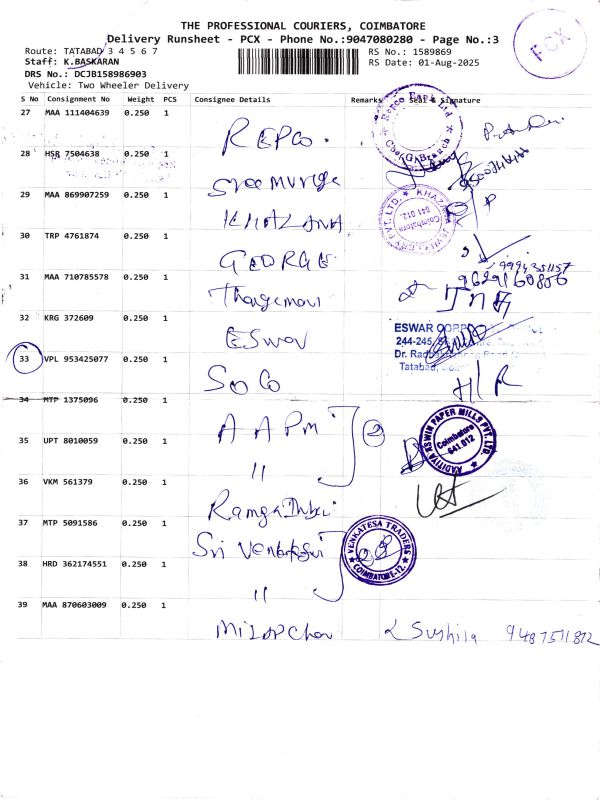 THE PROFESSIONAL COURIERS, COIMBATORE
Delivery Runsheet - PCX - Phone No.:9047080280 - Page No.:3
PCX
Route: TATABAD 3 4 5 6 7
RS No.: 1589869
Staff: K.BASKARAN
RS Date: 01-Aug-2025
DRS No.: DCJB158986903
Vehicle: Two Wheeler Delivery
S No Consignment No Weight PCS Consignee Details Remarks Seal & Signature
27 MAA 111404639 0.250 1
REPCO.
28 HSR 7504638 0.250 1
Sreemuruga
29 MAA 869907259 0.250 1
KHAZANA
30 TRP 4761874 0.250 1
GEORGE
9994351157
31 MAA 710785578 0.250 1
9629160856
Thangamani
32 KRG 372609 0.250 1
ESwar
ESWAR
244-245,
33 VPL 953425077 0.250 1
Tatabad,
SoCo
H/R
34 MTP 1375096 0.250 1
AAPM 2
35 UPT 8010059 0.250 1
"
AADITIYA ASWIN PAPER MILLS PVT. LTD.
Coimbatore
641 012
36 VKM 561379 0.250 1
37 MTP 5091586 0.250 1
Sri Venkatesa
VENKATESA TRADERS
COIMBATORE-12
38 HRD 362174551 0.250 1
"
39 MAA 870603009 0.250 1
MILAPChan
Sushila 9487511872